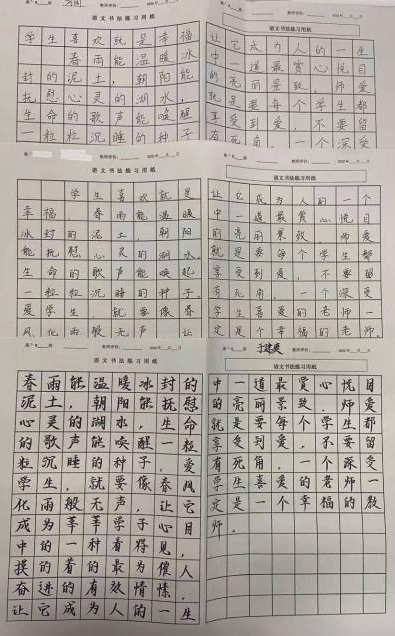 语文书法练习用纸
学生喜欢就是幸福
春雨能温暖冰
封的泥土，朝阳能
抚慰心灵的湖水，
生命的歌声能唤醒
一粒粒沉睡的种子
语文书法练习用纸
让它成为人的一生
中一道最赏心悦目
的亮丽景致，师爱
就是要每个学生都
享受到爱，不要留
有死角，一个深受
语文书法练习用纸
学生喜欢就是
幸福，春雨能温暖
冰封的泥土，朝阳
能抚慰心灵的湖水，
生命的歌声能唤起
一粒粒沉睡的种子，
爱学生，就要像春
风化雨般无声，让
语文书法练习用纸
让它成为人的一个
中一道最赏心悦目
的亮丽景致，师爱
就是要每个学生都
享受到爱，不要留
有死角，一个深受
学生喜爱的老师一
定是个幸福的老师
语文书法练习用纸
春雨能温暖冰封的
泥土，朝阳能抚慰
心灵的湖水，生命
的歌声能唤醒一粒
粒沉睡的种子。爱
学生，就要像春风
化雨般无声，让它
成为莘莘学子心目
中的一种看得见，
摸的着的最为催人
奋进的有效情愫，
让它成为人的一生
语文书法练习用纸
中一道最赏心悦目
的亮丽景致．师爱
就是要每个学生都
享受到爱，不要留
有死角，一个深受
学生喜爱的老师一
定是一个幸福的教
师。